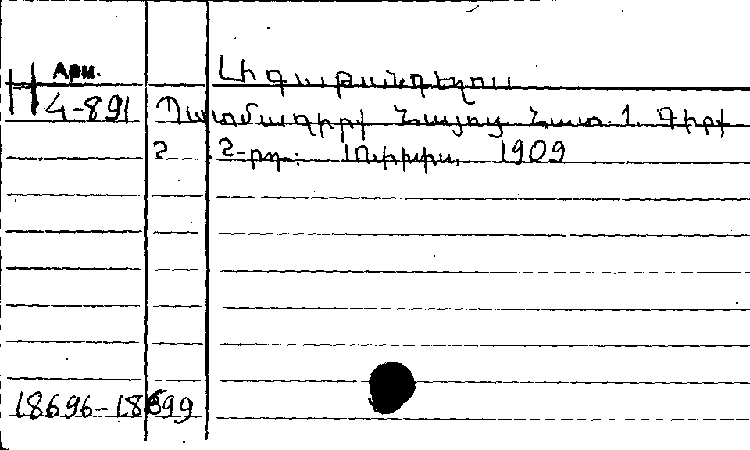 Арм.
Ագաթանգեղոս
4-891 Պատմագիրք Հայոց Հատ. 1. Գիրք
2 2-րդ. Թիֆլիս 1909
18696-18699